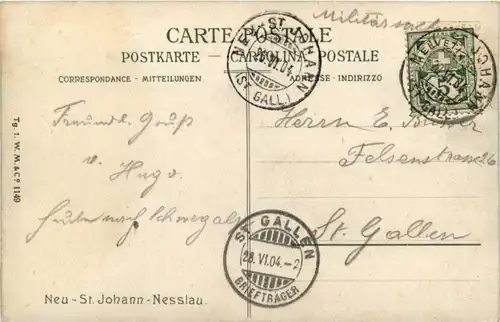 CARTE POSTALE
POSTKARTE — CARTOLINA POSTALE
CORRESPONDANCE - MITTEILUNGEN
ADRESSE - INDIRIZZO
NEU-ST. JOHANN
VI.04.
(ST. GALL.)
HELVETIA
JOHANN
(ST. GALL.)
Freundl. Gruß
v. Hugo
Herrn E.
Felsenstrasse
St. Gallen
ST. GALLEN
28.VI.04.-2
BRIEFTRÄGER
Tg. I. W. M. & Cº 1149
Neu-St. Johann-Nesslau.